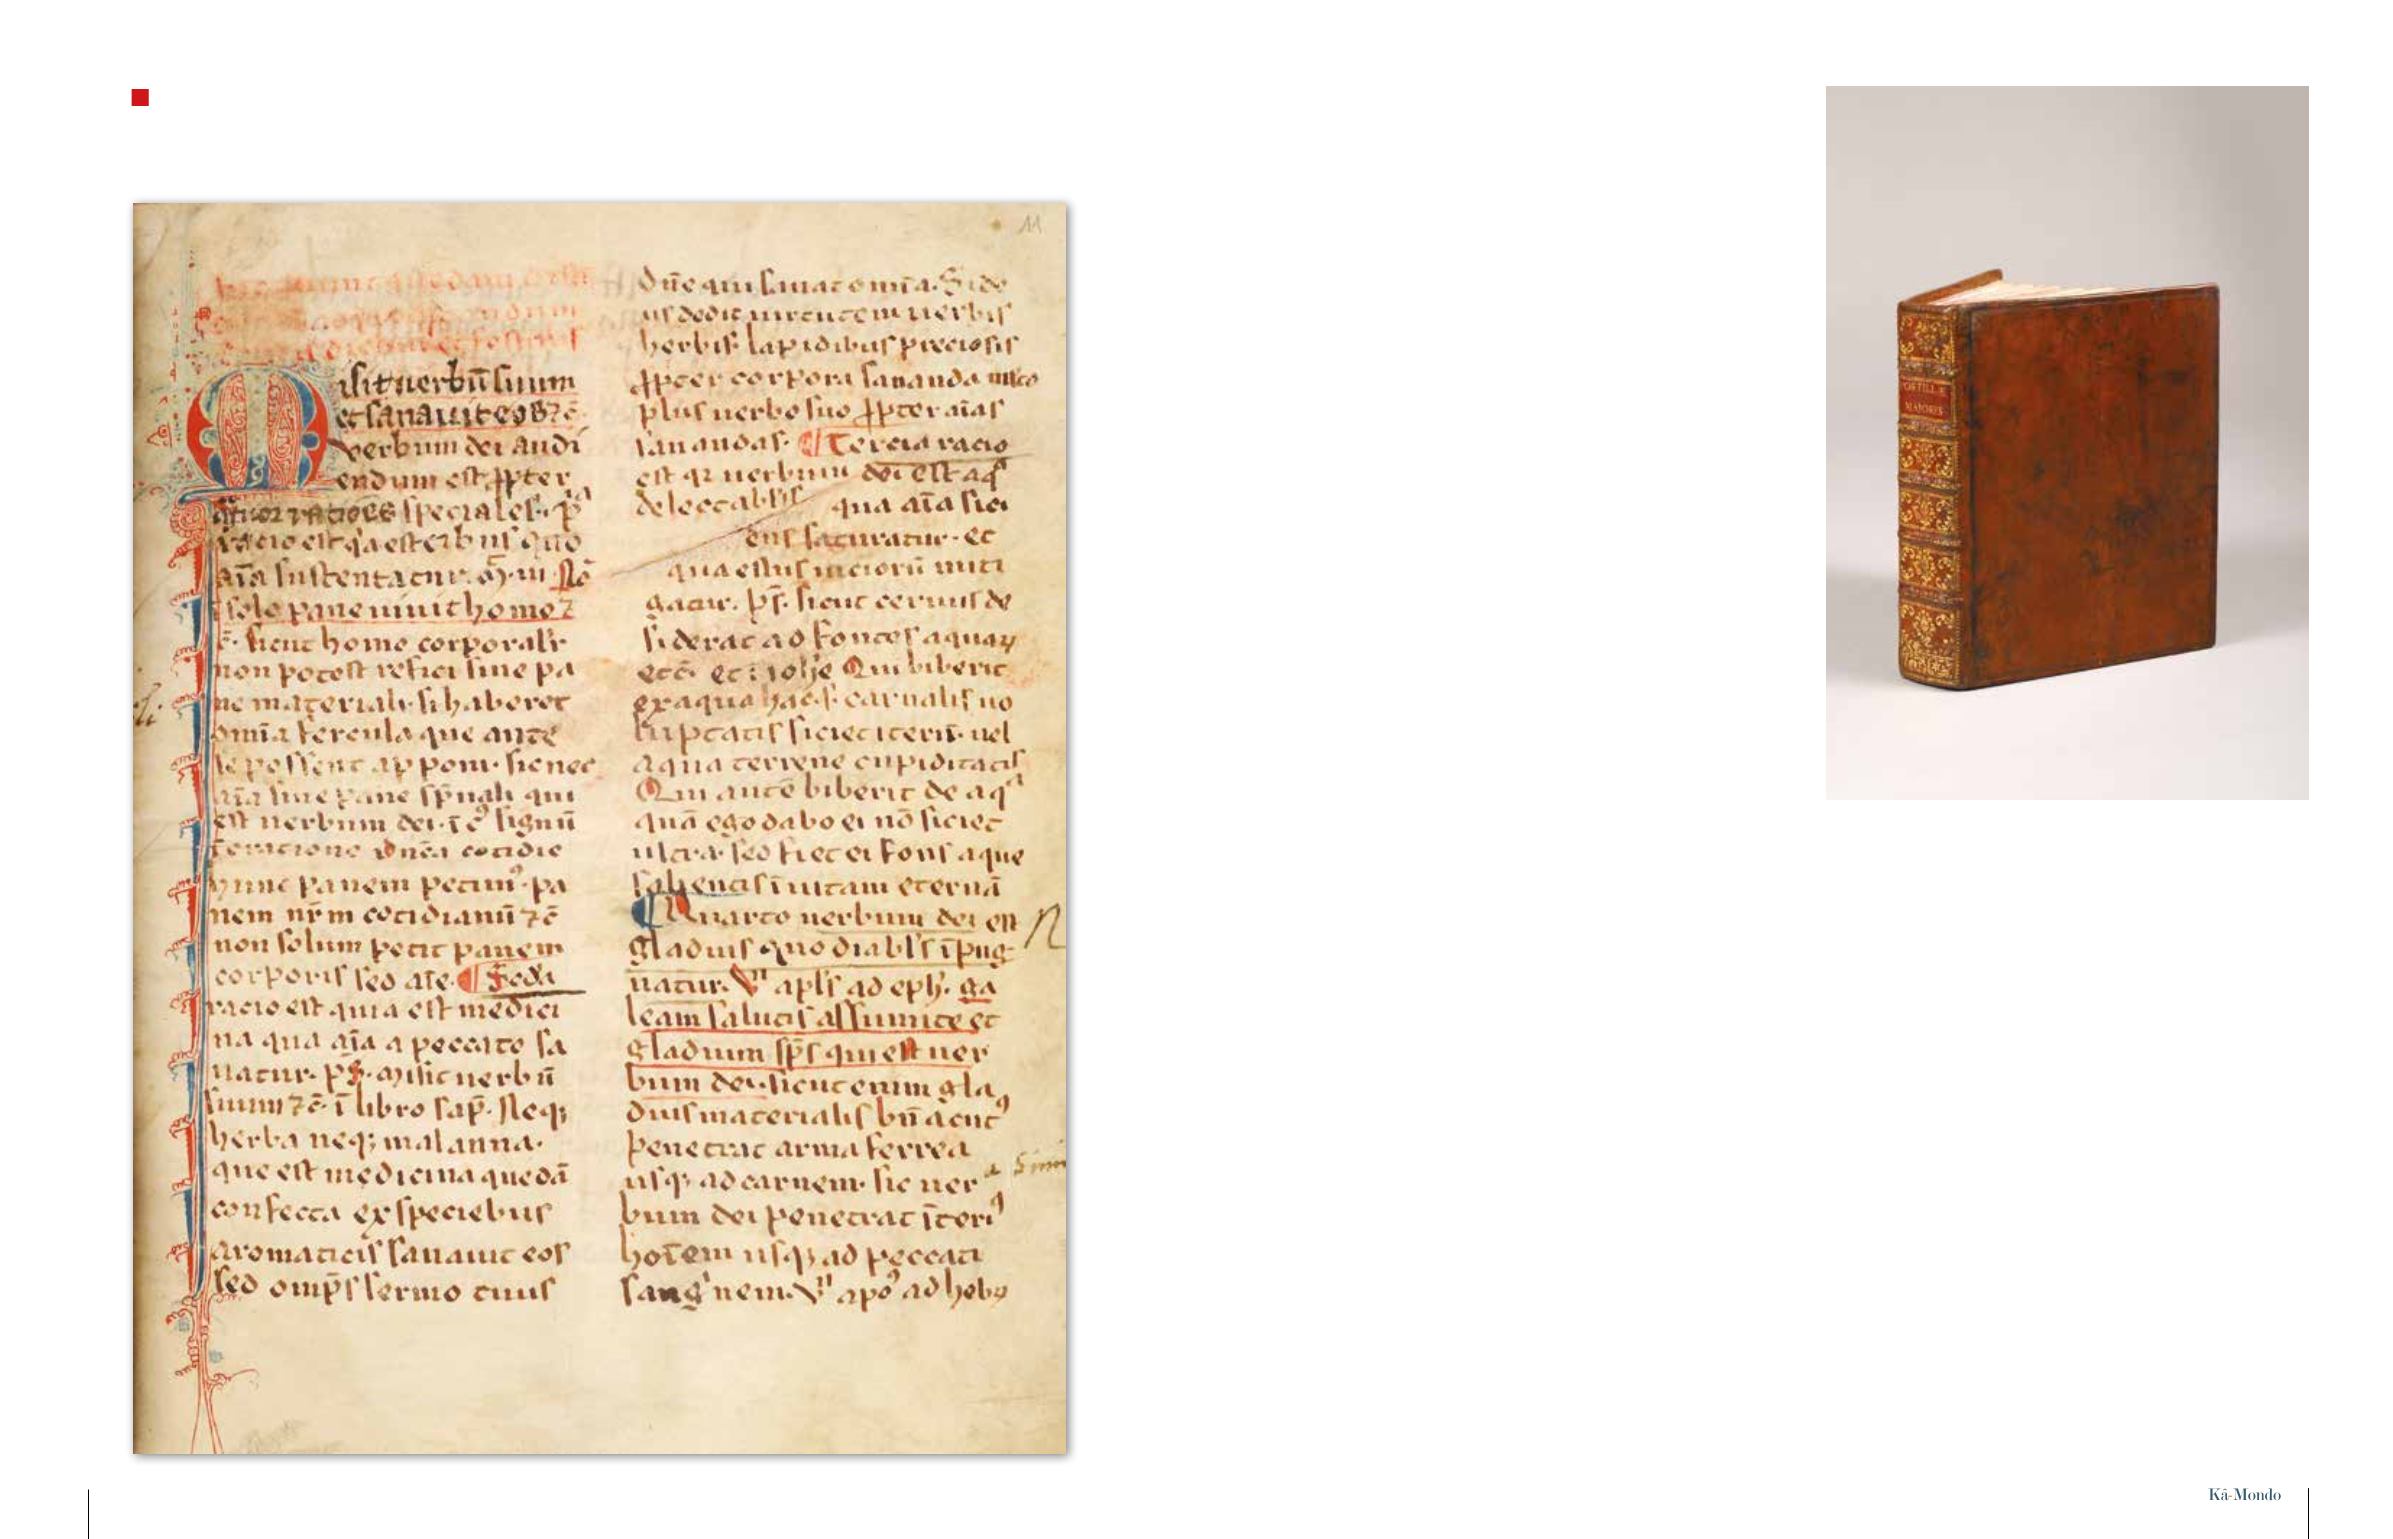 11
isit uerbū suum
et sanauit eos ⁊ c̄
verbum dei audi
endum est ꝓpter
rationes speciales. p̄ᵃ
racio est
aīa sustentatur. M̄. iiii. Nō
ī solo pane uiuit homo ⁊
c̄. sicut homo corporalr̄
non potest refici sine pa
ne materiali. si haberet
omīa fercula que ante
se possent apponi. sic nec
aīa sine pane sp̄uali qui
est uerbum dei. ī cꝰ signū
ī oracione dn̄ica cotidie
hunc panem petimꝰ. pa
nem nr̄m cotidianū ⁊ c̄
non solum petit panem
corporis sed aīe. ¶ Scd̄a
racio est quia est medici
na qua aīa a peccato sa
natur. ps̄. Misit uerbū
suum ⁊ c̄. ī libro sap̄. Neqꝫ
herba neqꝫ malanna.
que est medicina quedā
confecta ex speciebus
aromaticis sanauit eos
sed omp̄s sermo tuus
dn̄e qui sanat omīa. Si de
us dedit uirtutem uerbis
herbis lapidibus preciosis
ꝓpter corpora sananda
plus uerbo suo ꝓpter aīas
sanandas. ¶ Tercia racio
est qꝛ uerbum dei est aqᵃ
delectabilis qua aīa sici
ens saturatur. et
qua estus uiciorū miti
gatur. ps̄. sicut ceruus de
siderat ad fontes aquaꝝ
etc̄. et ī ioh̄e Qui biberit
ex aqua hac .s. carnalis uo
luptatis siciet iterū. uel
aqua terrene cupiditatis
Qui autē biberit de aqᵃ
quā ego dabo ei nō siciet
ultra. sed fiet ei fons aque
salientis ī uitam eternā
¶ Quarto uerbum dei est
gladius quo diabls̄ īpug
natur. Vn̄ apls̄ ad eph̄. ga
leam salutis assumite et
gladium sp̄s qui est uer
bum dei. sicut enim gla
dius materialis bn̄ acutꝰ
penetrat arma ferrea
usqꝫ ad carnem. sic uer
bum dei penetrat īteriꝰ
hoīem usqꝫ ad peccati
sangⁱnem. Vn̄ apoꝰ ad hebꝝ
POSTILLÆ
MAIORES
Kâ-Mondo